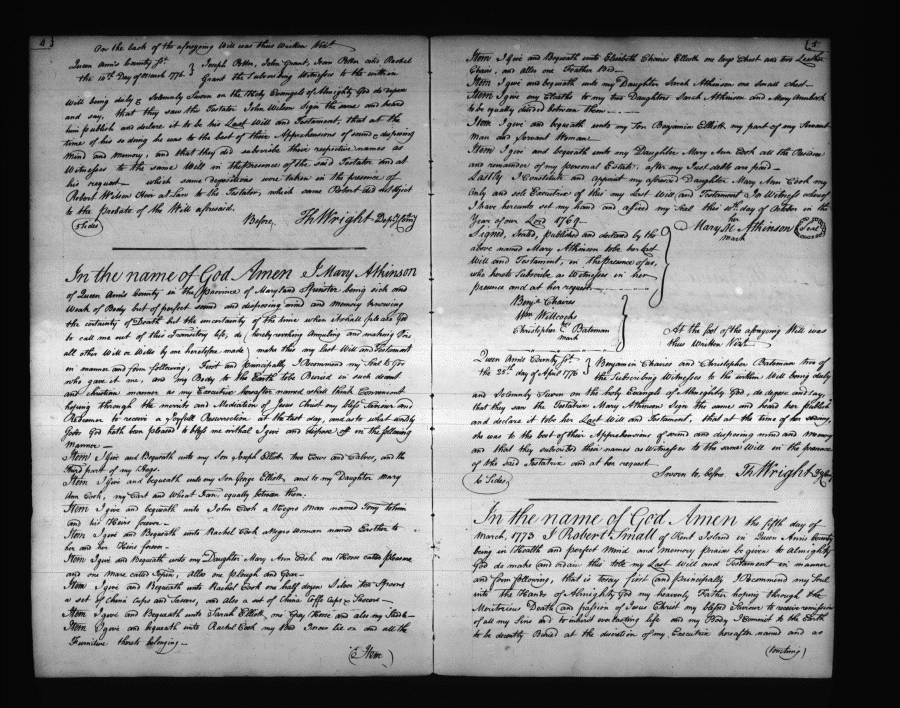 4
On the back of the aforegoing Will was thus Written Vizt
Queen Anns County Sct. } Joseph Potter, John Grant, Jean Potter and Rachel
the 14th Day of March 1776 } Grant the Subscribing Witnesses to the within
Will being duly & Solemnly Sworn on the Holy Evangels of Almighty God do depose
and say, that they saw the Testator John Wilson Sign the same and heard
him publish and declare it to be his Last Will and Testament; that at the
time of his so doing he was to the best of their Apprehensions of sound & disposing
Mind and Memory, and that they did subscribe their respective names as
Witnesses to the same Will in the presence of the said Testator and at
his request — which same depositions were taken in the presence of
Robert Wilson Heir at Law to the Testator, which same Robert did not object
to the Probate of the Will aforesaid.
5 Sides
Before, Th Wright Depy Comry
In the name of God Amen I Mary Atkinson
of Queen Anns County in the Province of Maryland Spinster being sick and
Weak of Body but of perfect sound and disposing mind and memory knowing
the certainty of Death but the uncertainty of the time when it shall please God
to call me out of this Transitory life, do hereby revoking Annulling and making Void
all other Will or Wills by me heretofore made make this my last Will and Testament
in manner and form following, First and principally I Recommend my Soul to God
who gave it me, and my Body to the Earth to be Buried in such decent
and christian manner as my Executrix hereafter named shall think Convenient
hoping through the merits and Mediation of Jesus Christ my blessed Saviour and
Redeemer to receive a Joyfull Resurrection at the last day, and as to what worldly
Goods God hath been pleased to bless me withal I give and dispose off in the following
Manner —
Item I Give and Bequeath unto my Son Joseph Elliott two Cows and Calves, and the
third part of my Hogs.
Item I give and bequeath unto my Son George Elliott, and to my Daughter Mary
Ann Cook, my Cart and Wheat Fan equally between them.
Item I give and bequeath unto John Cook a Negro Man named Tony to him
and his Heirs forever —
Item I give and Bequeath unto Rachel Cook Negro Woman named Easther to
her and her Heirs forever —
Item I give and Bequeath unto my Daughter Mary Ann Cook one Horse called Pleasure
and one Mare called, allso one plough and Gear —
Item I give and Bequeath unto Rachel Cook one half dozen Silver Tea Spoons
a set of China Cups and Sawcers, and also a set of China Coffe Cups & Sawcers —
Item I give and Bequeath unto Sarah Elliott, one Gray Horse and also my Saddle —
Item I give and bequeath unto Rachel Cook my Bed I now lie on and all the
Furniture thereto belonging —
(Item)
5
Item I give and Bequeath unto Elizabeth Chaires Elliott one large Chest and two Leather
Chairs, and allso one Feather Bed —
Item I give and bequeath unto my Daughter Sarah Atkinson one Small Chest —
Item I give my Cloaths to my two Daughters Sarah Atkinson and Mary Ann Cook
to be equally devided between them —
Item I give and bequeath unto my Son Benjamin Elliott my part of my Servant
Man and Servant Woman —
Item I give and bequeath unto my Daughter Mary Ann Cook all the Residue
and remainder of my personal Estate, after my Just debts are paid —
Lastly I Constitute and appoint my aforesd Daughter Mary Ann Cook my
Only and sole Executrix of this my Last Will and Testament In Witness whereof
I have hereunto set my hand and afixed my Seal this 10th day of October in the
Year of our Lord 1769 —
her
Mary M Atkinson Seal
mark
Signed, Sealed, published and declared by the
above named Mary Atkinson to be her Last
Will and Testament, in the presence of us,
who hereto Subscribe as Witnesses in her
presence and at her request —
Benja Chaires
Wm Willcocks
Christopher Bateman
mark
At the foot of the aforegoing Will was
thus Written Vizt
Queen Anns County Sct. } Benjamin Chaires and Christopher Bateman two of
the 25th day of April 1776 } the Subscribing Witnesses to the within Will being duly
and Solemnly Sworn on the holy Evangels of Almighty God, do depose and say,
that they saw the Testatrix Mary Atkinson Sign the same and heard her publish
and declare it to be her Last Will and Testament, that at the time of her so doing,
she was to the best of their Apprehensions of sound and disposing mind and Memory
and that they subscribed their names as Witnesses to the same Will in the presence
of the said Testatrix and at her request
Sworn to, before Th Wright
6 Sides
In the name of God Amen the fifth day of
March, 1773 I Robert Small of Kent Island in Queen Anns County
being in Health and perfect Mind and Memory praise be given to Almighty
God do make and ordain this to be my Last Will and Testament in manner
and form following, that is to say first and principally I Recommend my Soul
into the Hands of Almighty God my heavenly Father hoping through the
Meritorious Death and passion of Jesus Christ my blessed Saviour to receive remission
of all my Sins and to inherit everlasting life and my Body I Commit to the Earth
to be decently Buried at the discretion of my Executrix hereafter named and as
(touching)